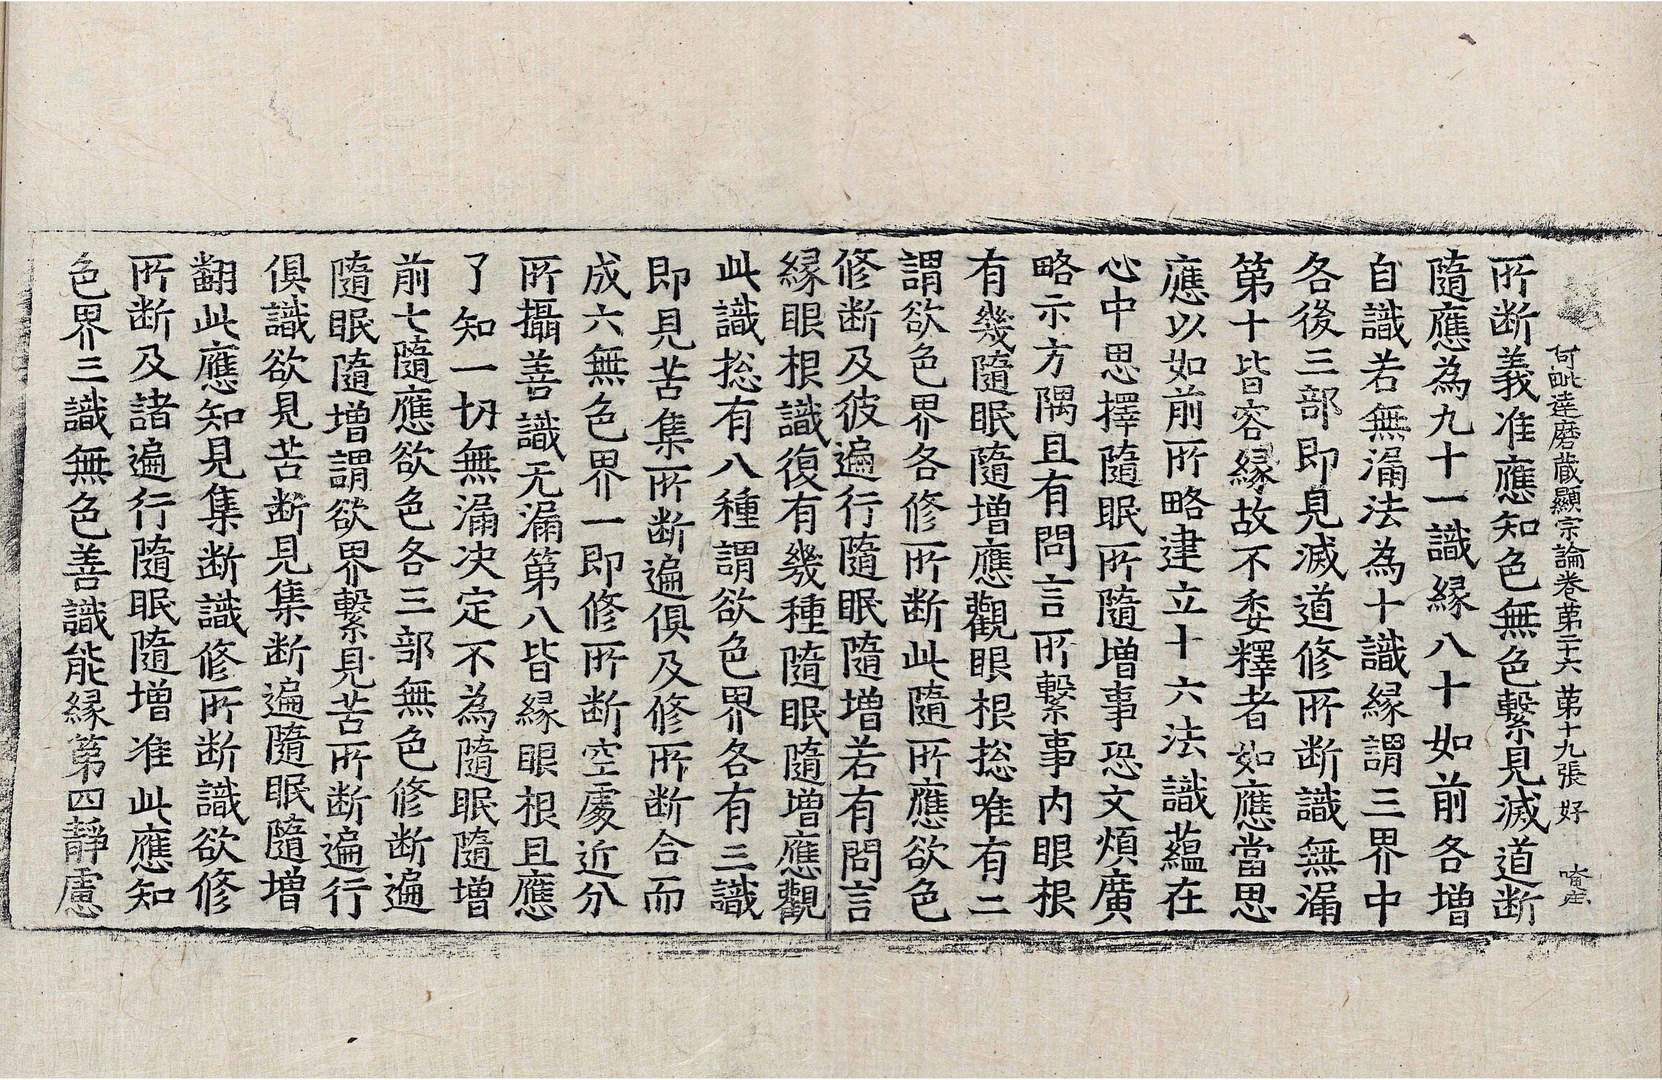 阿毗達磨藏顯宗論卷第二十六 第十九張 好
所断義准應知色無色繫見滅道断
隨應為九十一識緣八十如前各增
自識若無漏法為十識緣謂三界中
各後三部即見滅道修所断識無漏
第十皆容緣故不委釋者如應當思
應以如前所略建立十六法識蘊在
心中思擇隨眠所隨增事恐文煩廣
略示方隅且有問言所繫事内眼根
有幾隨眠隨增應觀眼根捴唯有二
謂欲色界各修所断此隨所應欲色
修断及彼遍行隨眠隨增若有問言
緣眼根識復有幾種隨眠隨增應觀
此識捴有八種謂欲色界各有三識
即見苦集所断遍俱及修所断合而
成六無色界一即修所断空處近分
所攝善識无漏第八皆緣眼根且應
了知一切無漏决定不為隨眠隨增
前七隨應欲色各三部無色修断遍
隨眠隨增謂欲界繫見苦所断遍行
俱識欲見苦断見集断遍隨眠隨增
翻此應知見集断識修所断識欲修
所断及諸遍行隨眠隨增准此應知
色界三識無色善識能緣第四靜慮